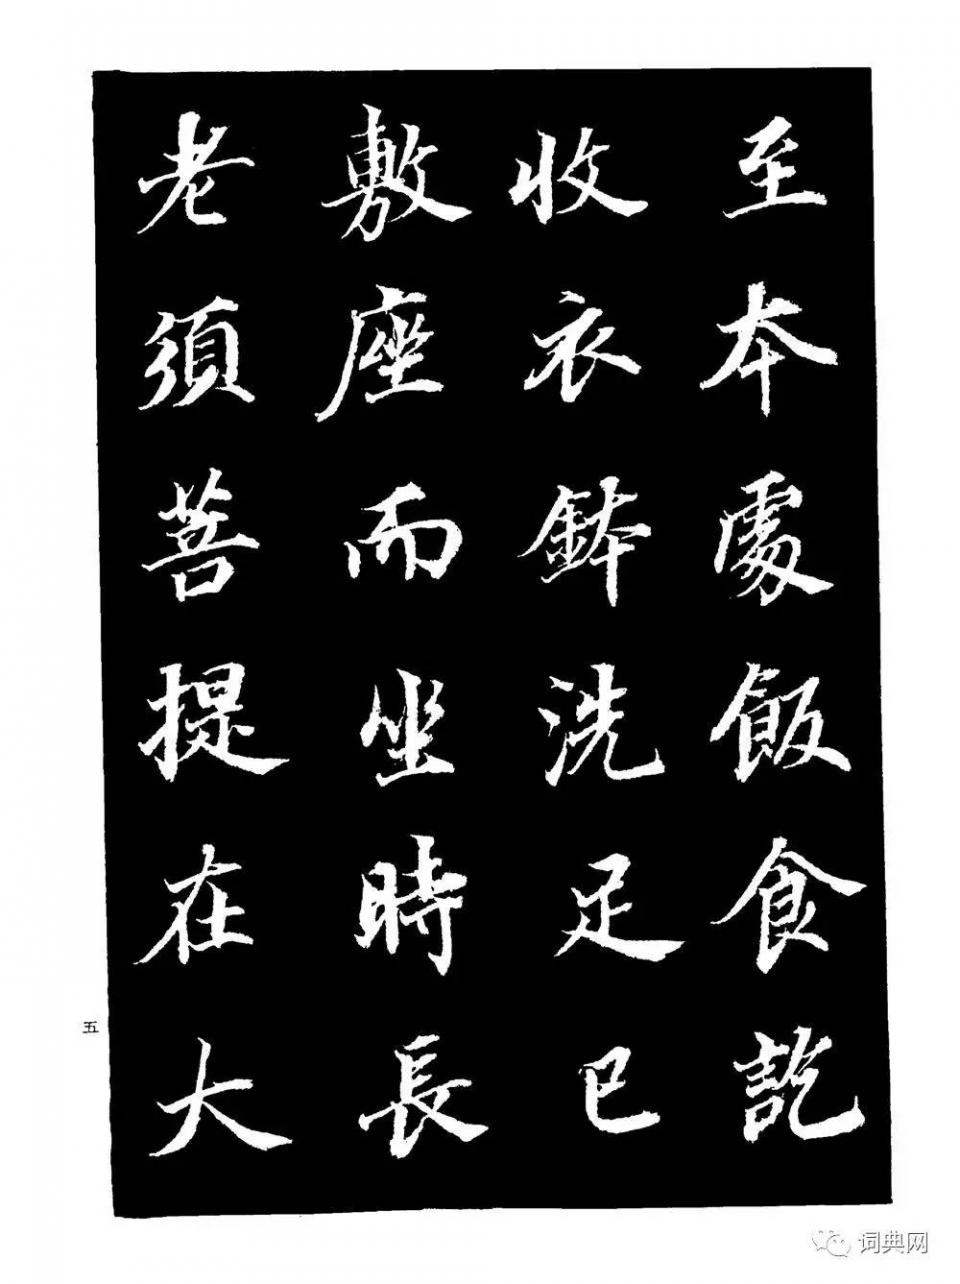 至本處飯食訖
收衣鉢洗足已
敷座而坐時長
老須菩提在大
五
词典网